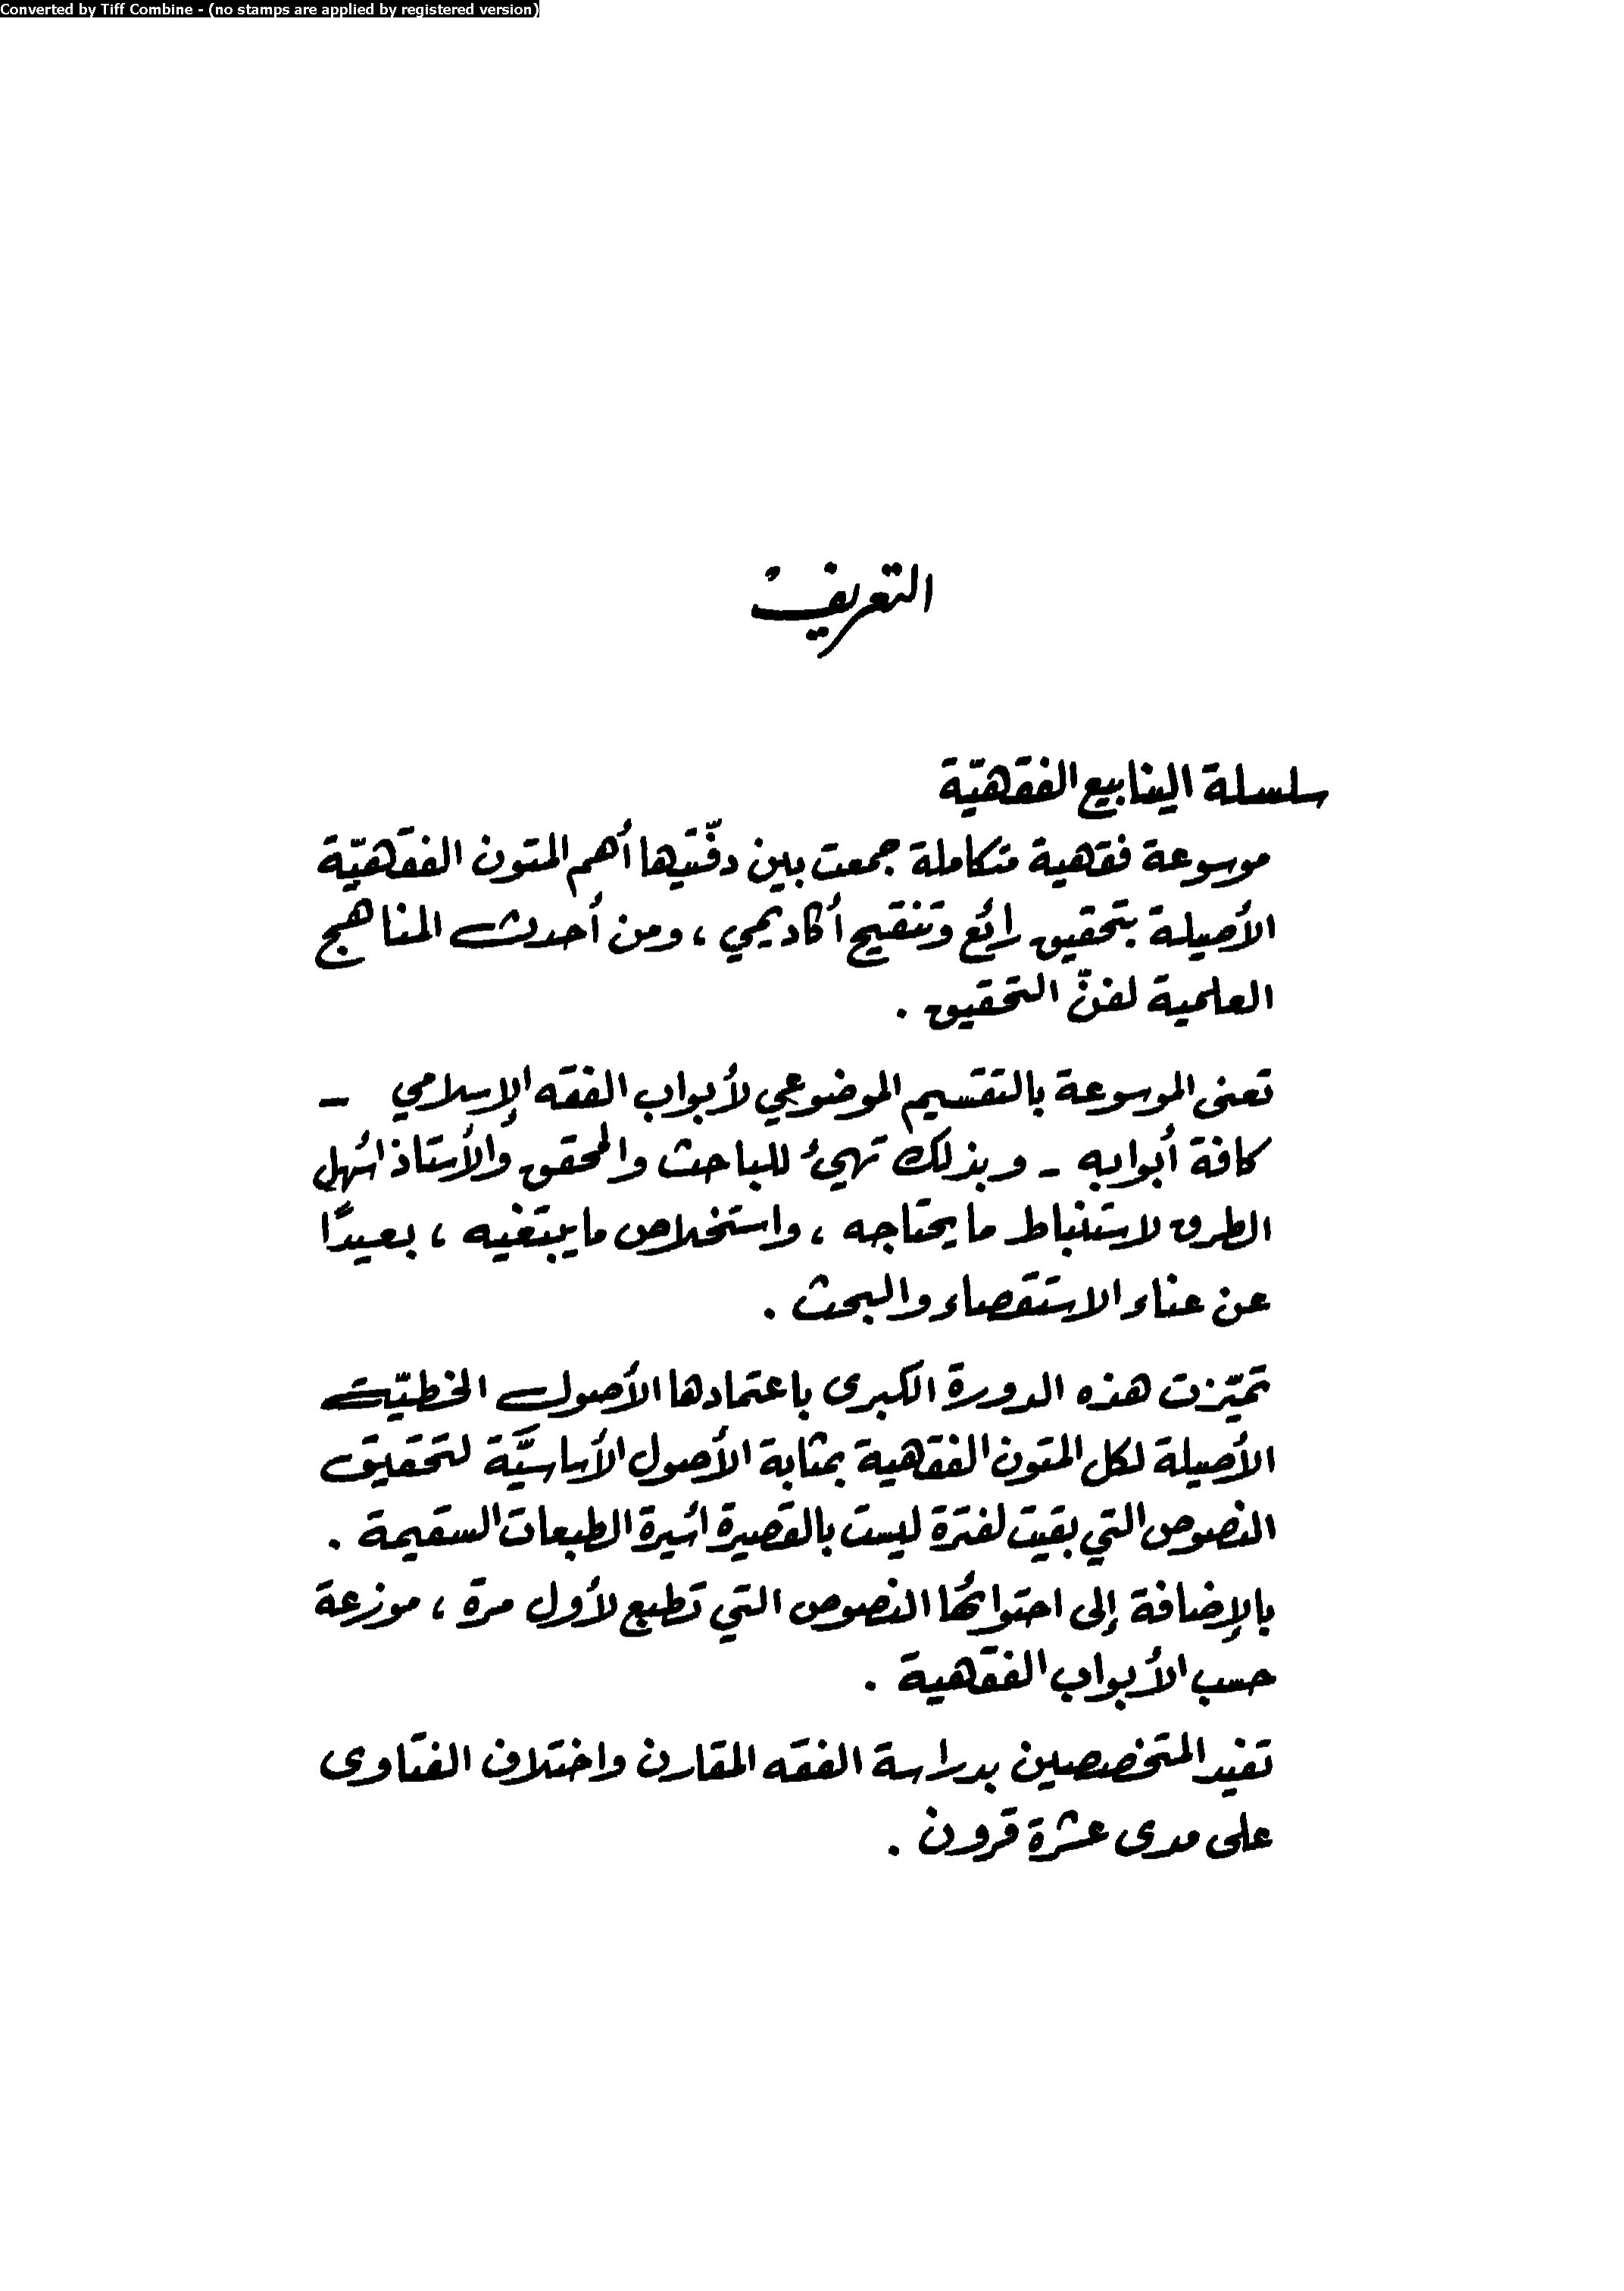 Converted by Tiff Combine - (no stamps are applied by registered version)
التعريف
سلسلة الينابيع الفقهيّة
موسوعة فقهية متكاملة جمعت بين دفّتيها أهم المتون الفقهيّة
الأصيلة بتحقيق رائع وتنقيح أكاديمي ، ومن أحدث المناهج
العلمية لفنّ التحقيق .
تعنى الموسوعة بالتقسيم الموضوعي لأبواب الفقه الإسلامي –
كافة أبوابه – وبذلك تهيئ للباحث والمحقق والأستاذ أسهل
الطرق لاستنباط ما يحتاجه ، واستخلاص ما يبتغيه ، بعيدًا
عن عناء الاستقصاء والبحث .
تميّزت هذه الدورة الكبرى باعتمادها الأصول الخطيّة
الأصيلة لكل المتون الفقهية بمثابة الأصول الأساسيَّة لتحقيق
النصوص التي بقيت لفترة ليست بالقصيرة أسيرة الطبعات السقيمة .
بالإضافة إلى احتوائها النصوص التي تطبع لأول مرة ، موزعة
حسب الأبواب الفقهية .
تفيد المتخصصين بدراسة الفقه المقارن واختلاف الفتاوى
على مدى عشرة قرون .